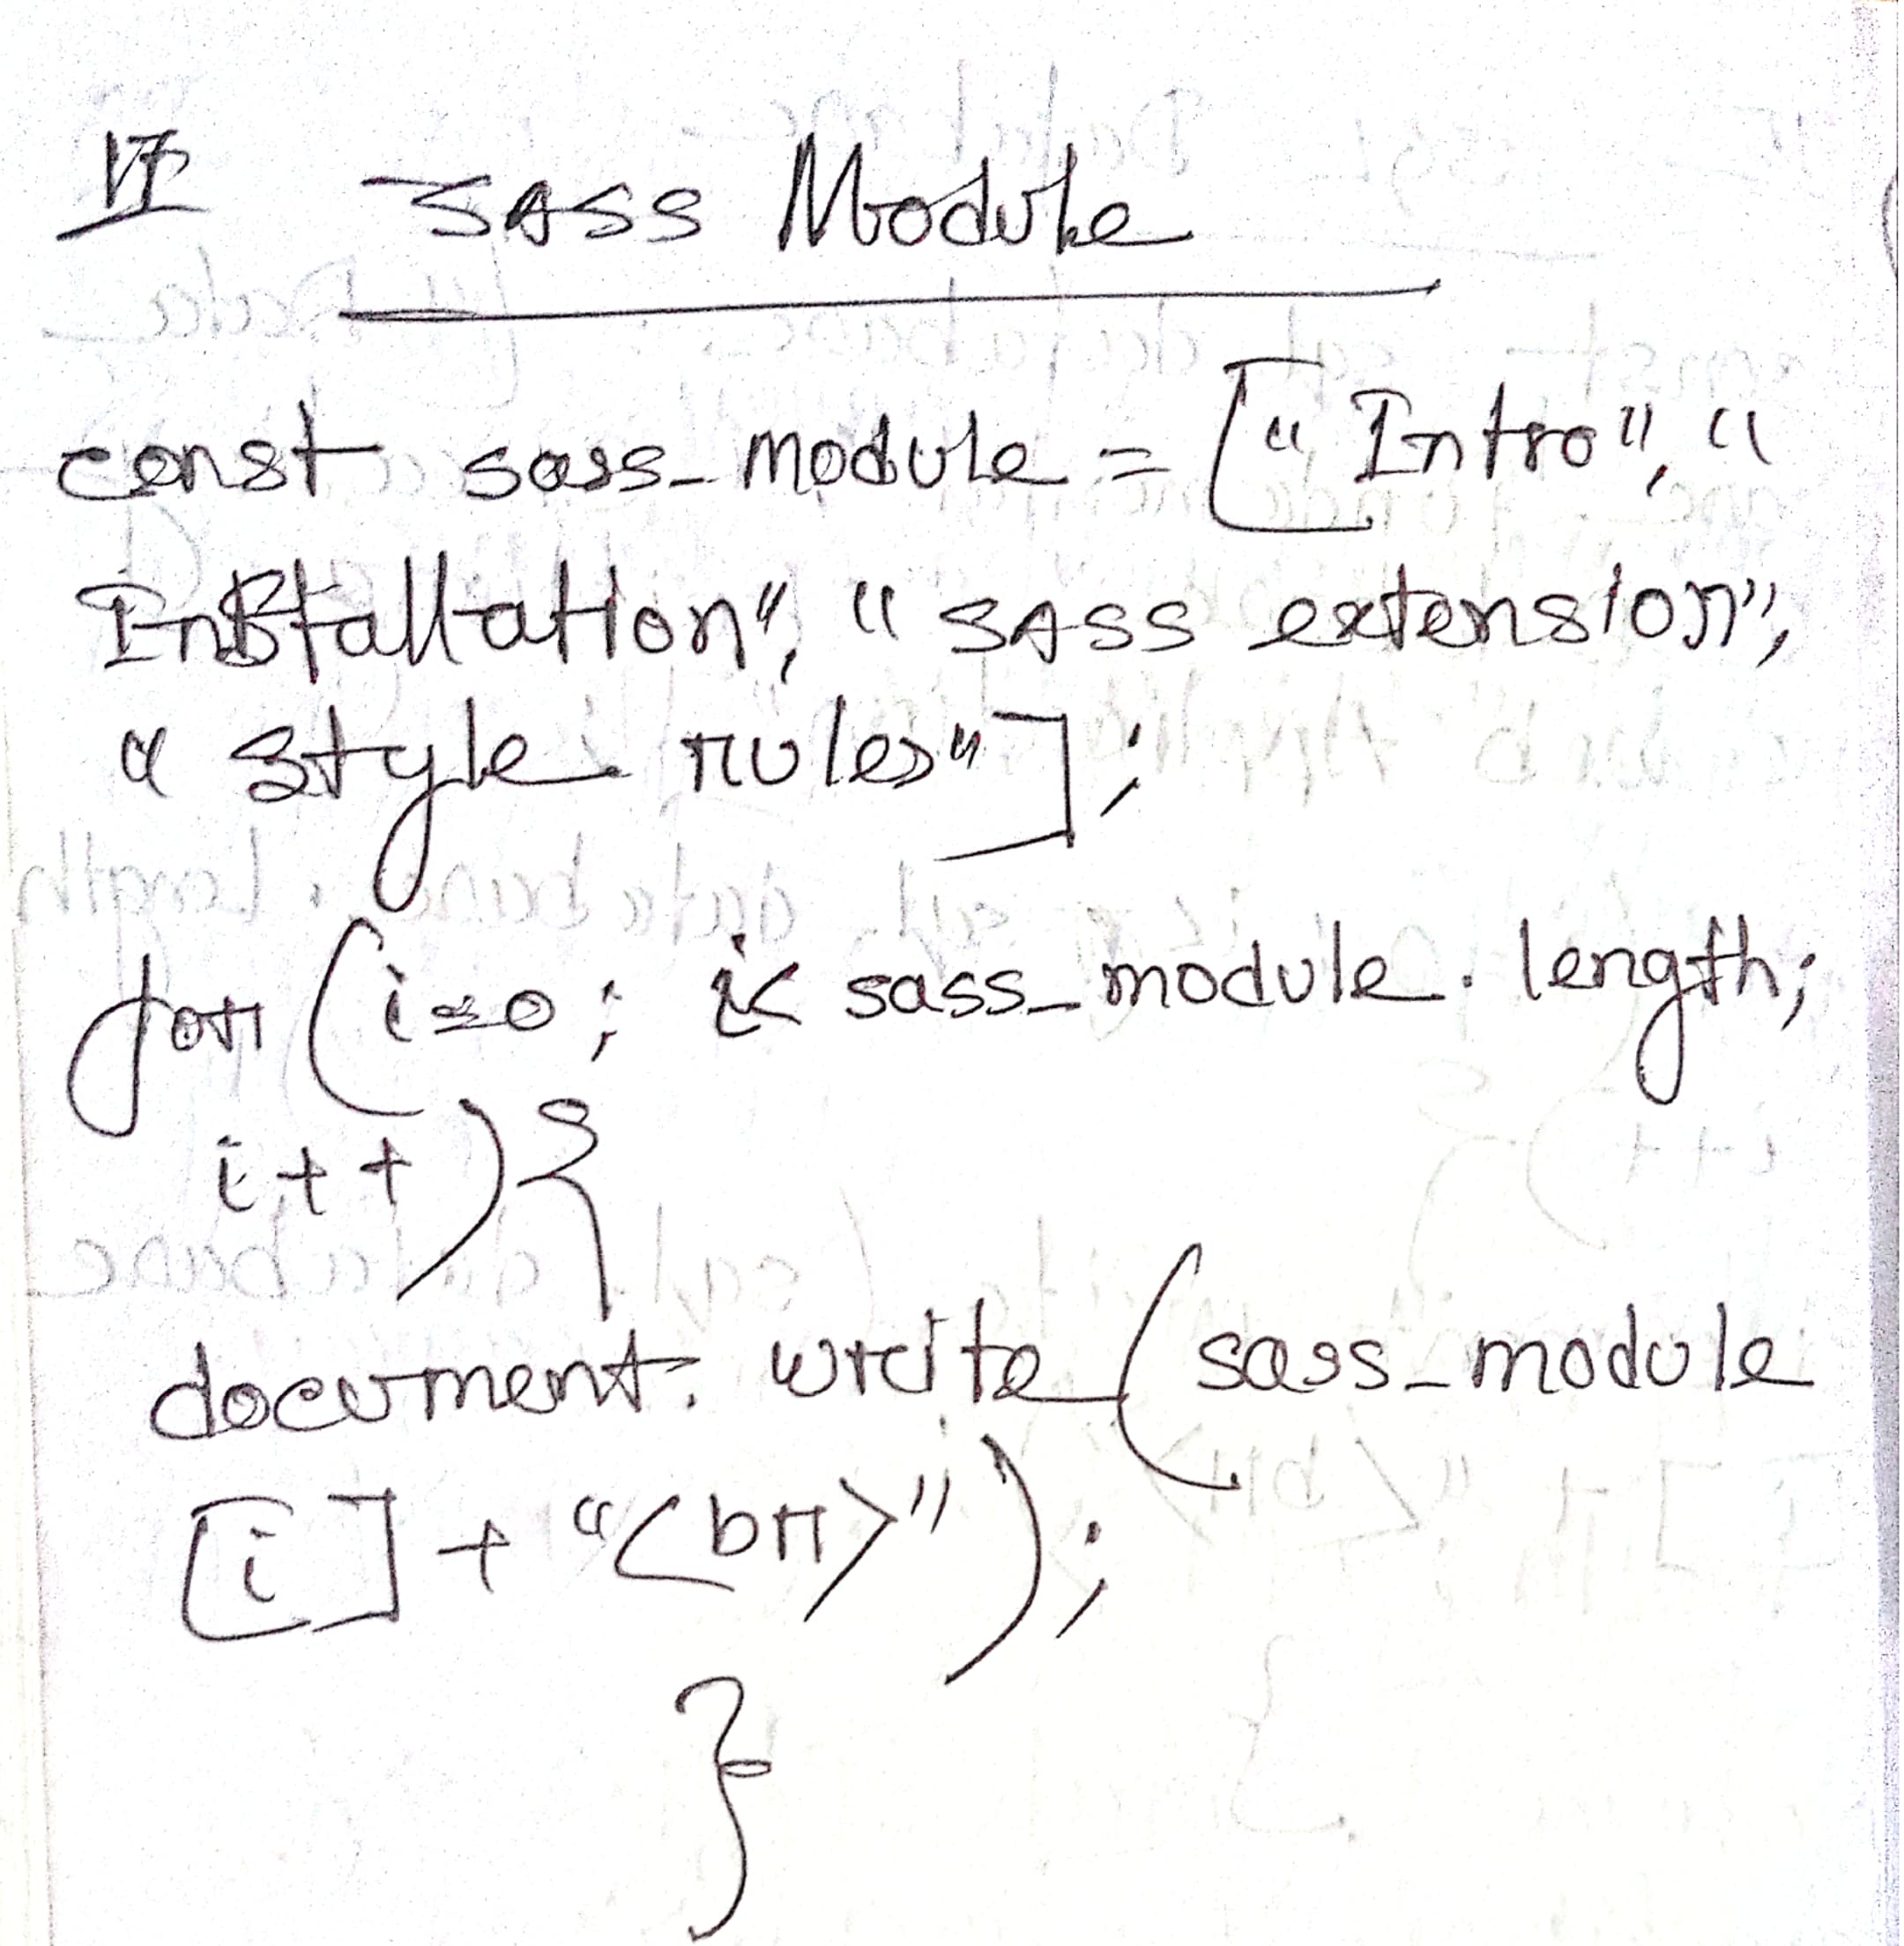 VI SASS Module
const sass_module = ["Intro", "
Installation", "SASS extension",
"Style rules"];
for (i=0; i< sass_module.length;
i++){
document.write(sass_module
[i] + "<br>");
}